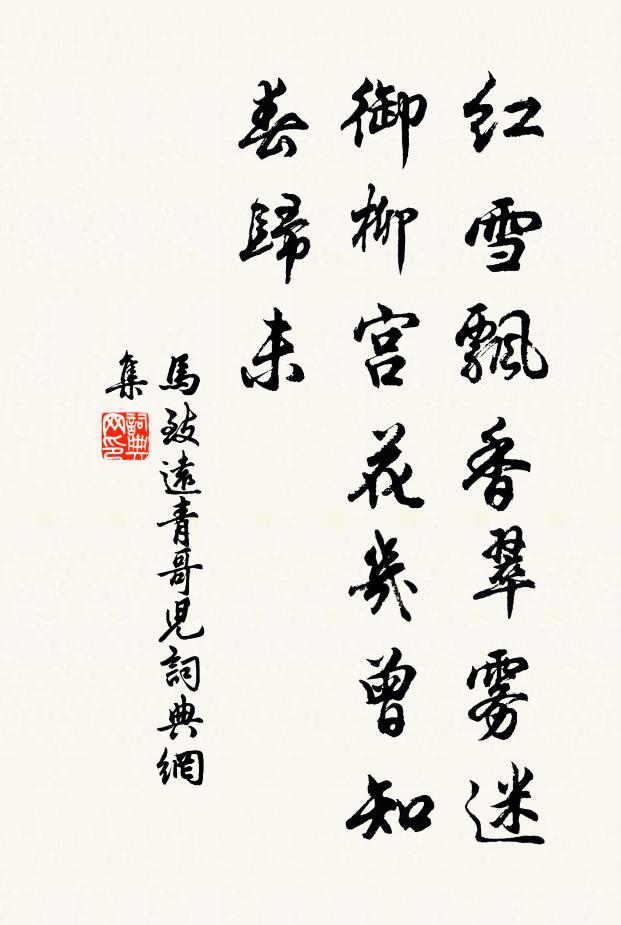 紅雪飄香翠雾迷
御柳宮花幾曾知
春歸未
馬致遠青哥兒詞典網
集
詞典
网印